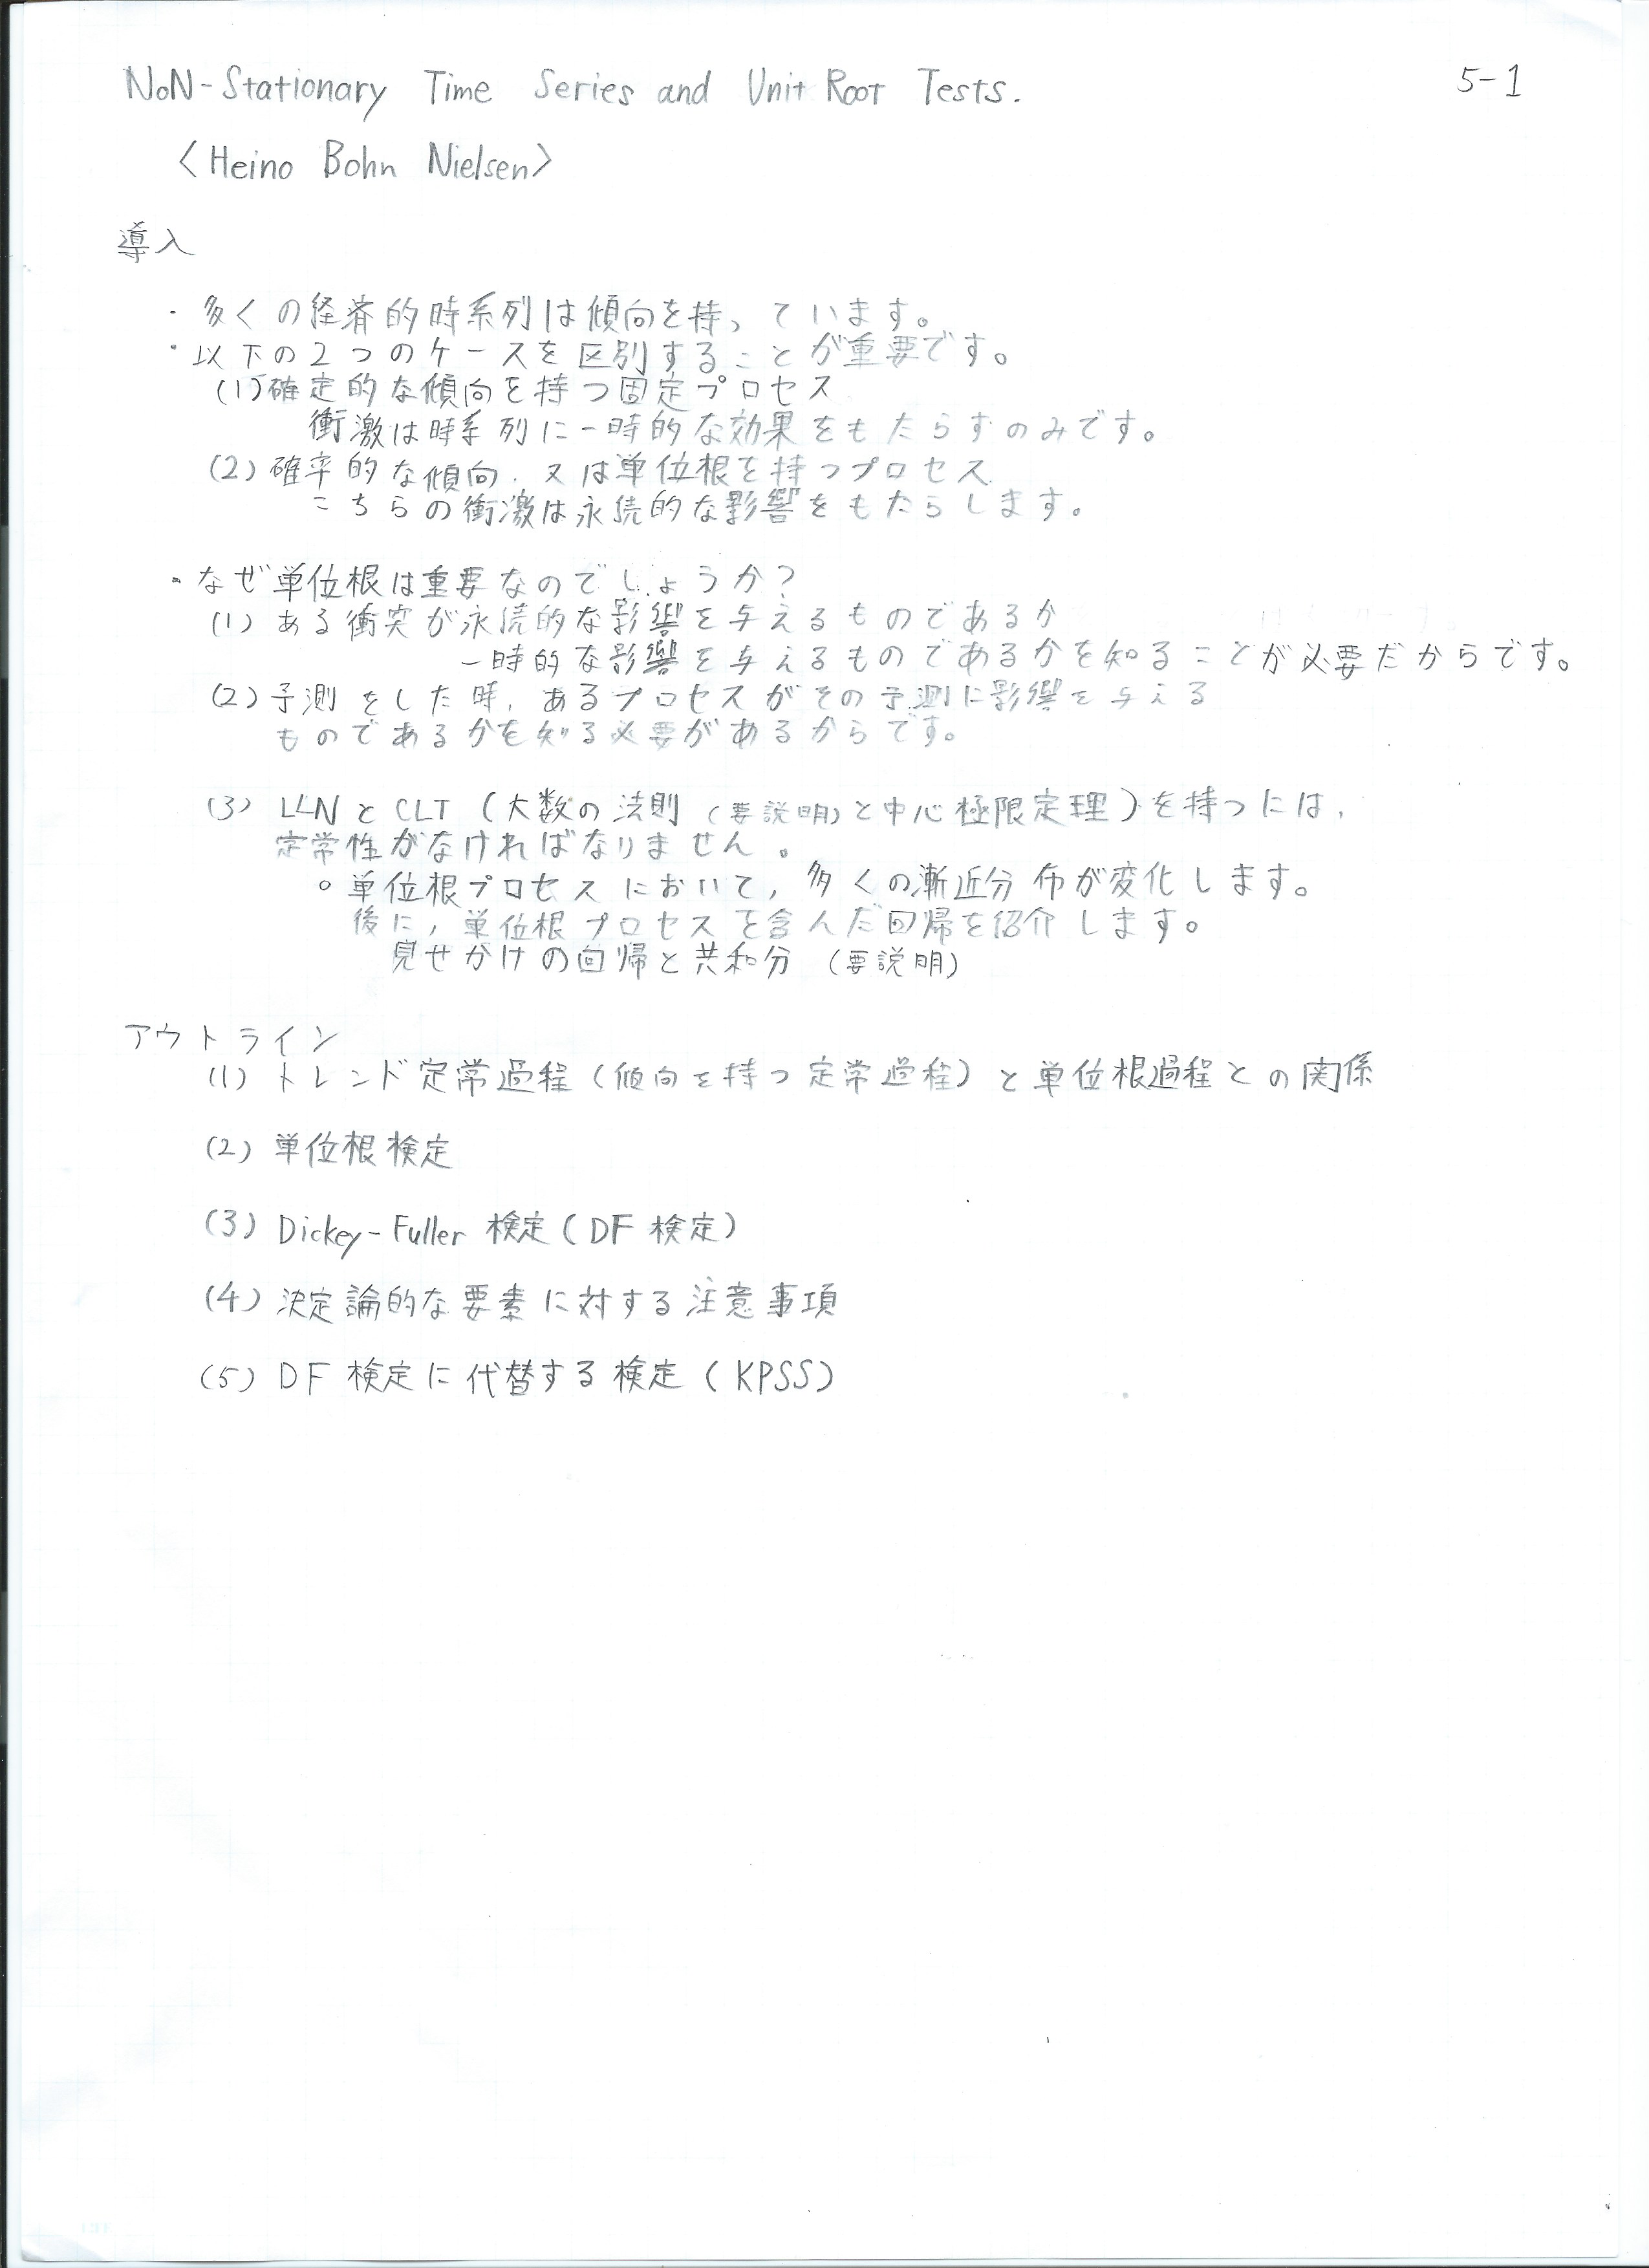 NoN-Stationary Time Series and Unit Root Tests. 5-1
<Heino Bohn Nielsen>
導入
・多くの経済的時系列は傾向を持っています。
・以下の2つのケースを区別することが重要です。
(1)確定的な傾向を持つ固定プロセス
衝激は時系列に一時的な効果をもたらすのみです。
(2)確率的な傾向,又は単位根を持つプロセス
こちらの衝激は永続的な影響をもたらします。
・なぜ単位根は重要なのでしょうか?
(1)ある衝突が永続的な影響を与えるものであるか
一時的な影響を与えるものであるかを知ることが必要だからです。
(2)予測をした時,あるプロセスがその予測に影響を与える
ものであるかを知る必要があるからです。
(3) LLNとCLT(大数の法則(要説明)と中心極限定理)を持つには,
定常性がなければなりません。
○単位根プロセスにおいて,多くの漸近分布が変化します。
後に,単位根プロセスを含んだ回帰を紹介します。
見せかけの回帰と共和分(要説明)
アウトライン
(1)トレンド定常過程(傾向を持つ定常過程)と単位根過程との関係
(2)単位根検定
(3) Dickey-Fuller 検定(DF検定)
(4)決定論的な要素に対する注意事項
(5) DF検定に代替する検定(KPSS)